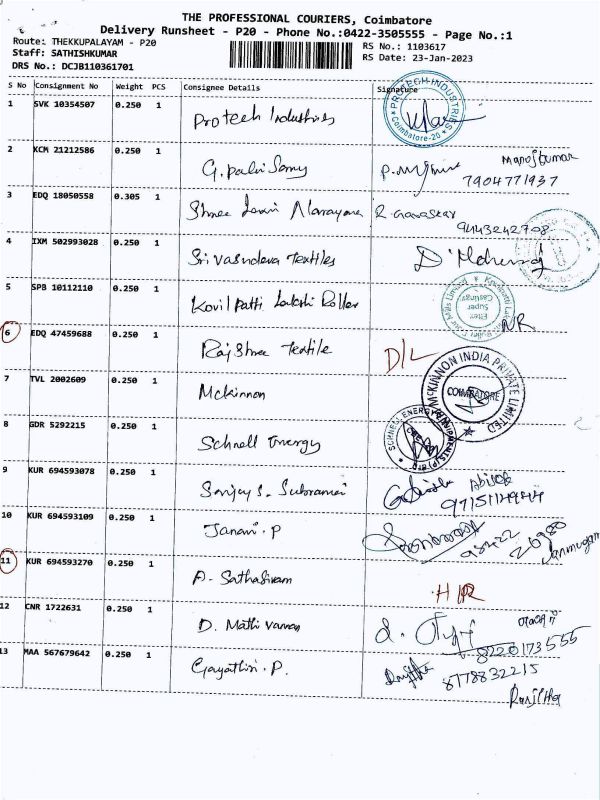 THE PROFESSIONAL COURIERS, Coimbatore
Delivery Runsheet - P20 - Phone No.:0422-3505555 - Page No.:1
Route: THEKKUPALAYAM - P20
RS No.: 1103617
Staff: SATHISHKUMAR
RS Date: 23-Jan-2023
DRS No.: DCJB110361701
S No Consignment No Weight PCS Consignee Details Signature
1 SVK 10354507 0.250 1 Protech Industries
PROTECH INDUSTRIES Coimbatore-20
2 KCM 21212586 0.250 1 G. Palni Samy Manojkumar
7904771937
3 EDQ 18050558 0.305 1 Shree Laxmi Narayana R. Gavaskar
9443242708
4 IXM 502993028 0.250 1 Sri Vasudeva Textiles
5 SPB 10112110 0.250 1 Kovil Patti Lakshi Roller
Eltex Super Castings
NR
6 EDQ 47459688 0.250 1 Raj Shree Textile D/L
7 TVL 2002609 0.250 1 Mckinnon
MCKINNON INDIA PRIVATE LIMITED COIMBATORE
8 GDR 5292215 0.250 1 Schnell Energy
SCHNELL ENERGY EQUIPMENTS (P) LTD
9 KUR 694593078 0.250 1 Sanjay S. Subramani
10 KUR 694593109 0.250 1 Janani. P
98422 26980
Janmugam
11 KUR 694593270 0.250 1 A. Sathasivam H
12 CNR 1722631 0.250 1 D. Mathivanan
8220173555
13 MAA 567679642 0.250 1 Gayathiri. P. Ranjitha
8778832215
Ranjitha